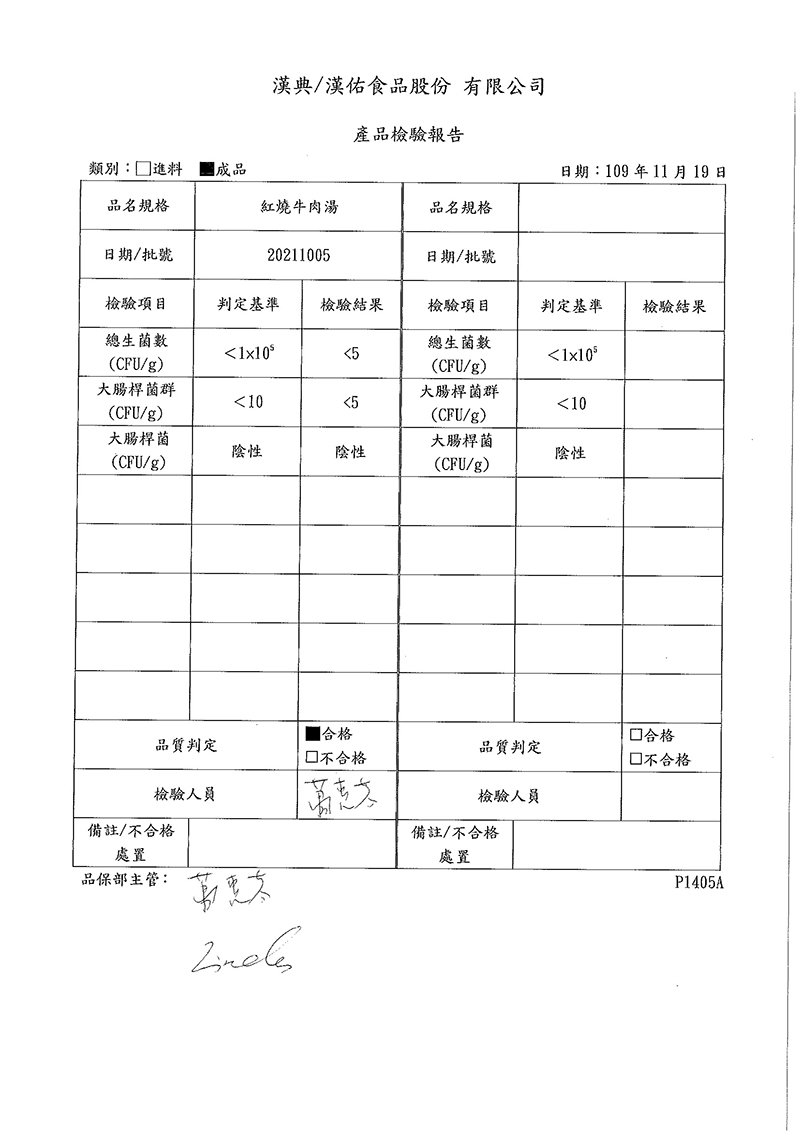 漢典/漢佑食品股份 有限公司
產品檢驗報告
類別：□進料 ■成品 日期：109 年 11 月 19 日
品名規格 紅燒牛肉湯 品名規格
日期/批號 20211005 日期/批號
檢驗項目 判定基準 檢驗結果 檢驗項目 判定基準 檢驗結果
總生菌數 (CFU/g) <1x10⁵ <5 總生菌數 (CFU/g) <1x10⁵
大腸桿菌群 (CFU/g) <10 <5 大腸桿菌群 (CFU/g) <10
大腸桿菌 (CFU/g) 陰性 陰性 大腸桿菌 (CFU/g) 陰性
品質判定 ■合格 □不合格 品質判定 □合格 □不合格
檢驗人員 檢驗人員
備註/不合格處置 備註/不合格處置
品保部主管： P1405A